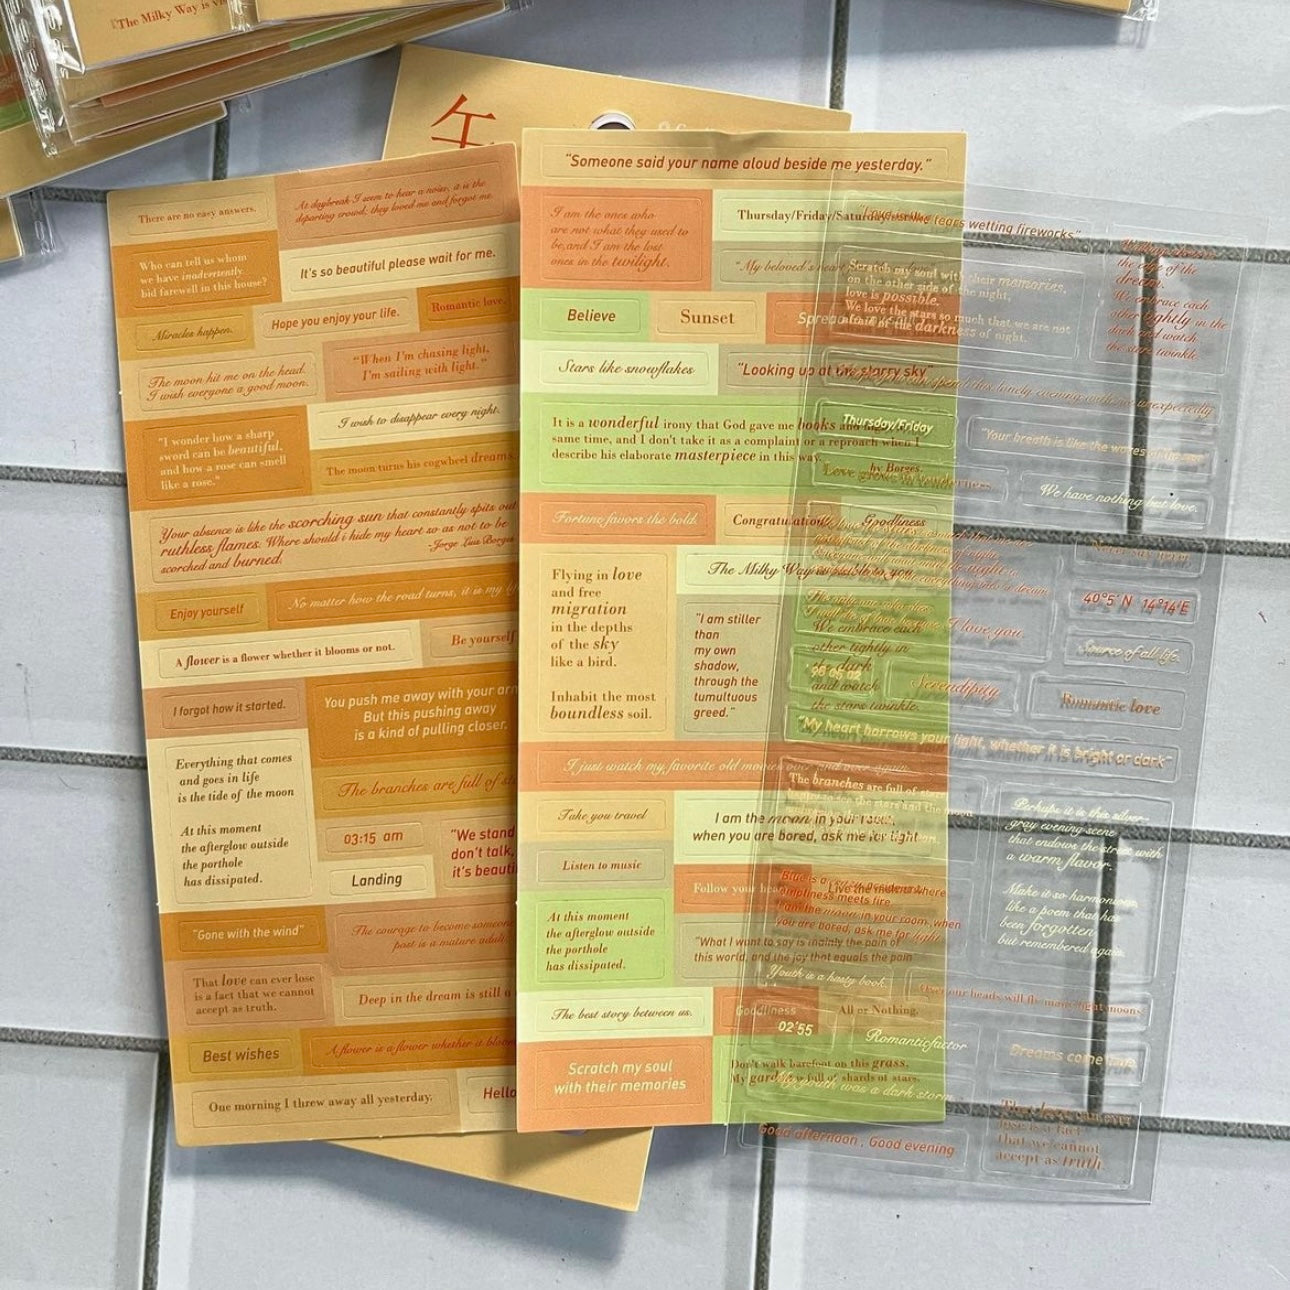 "The Milky Way is
午
There are no easy answers.
At daybreak I seem to hear a noise, it is the
departing crowd; they loved me and forgot me.
Who can tell us whom
we have inadvertently
bid farewell in this house?
It's so beautiful please wait for me.
Miracles happen.
Hope you enjoy your life.
Romantic love.
The moon hit me on the head.
I wish everyone a good moon.
"When I'm chasing light,
I'm sailing with light."
"I wonder how a sharp
sword can be beautiful,
and how a rose can smell
like a rose."
I wish to disappear every night.
The moon turns his cogwheel dreams
Your absence is like the scorching sun that constantly spits out
ruthless flames. Where should i hide my heart so as not to be
scorched and burned.
-Jorge Luis Borges
Enjoy yourself
No matter how the road turns, it is my
A flower is a flower whether it blooms or not.
Be yourself
I forgot how it started.
You push me away with your arm
But this pushing away
is a kind of pulling closer.
Everything that comes
and goes in life
is the tide of the moon
At this moment
the afterglow outside
the porthole
has dissipated.
The branches are full of
03:15 am
Landing
"We stand
don't talk,
it's beauti
"Gone with the wind"
The courage to become someone
past is a mature adult
That love can ever lose
is a fact that we cannot
accept as truth.
Deep in the dream is still a
Best wishes
A flower is a flower whether it bloom
One morning I threw away all yesterday.
Hello
"Someone said your name aloud beside me yesterday."
I am the ones who
are not what they used to
be, and I am the lost
ones in the twilight.
Thursday/Friday/Saturday
"My beloved's heart
Believe
Sunset
Spread
Stars like snowflakes
"Looking up at the starry sky"
It is a wonderful irony that God gave me books
same time, and I don't take it as a complaint or a reproach when I
describe his elaborate masterpiece in this way.
by Borges.
Fortune favors the bold.
Congratulations
Goodliness
Flying in love
and free
migration
in the depths
of the sky
like a bird.
Inhabit the most
boundless soil.
The Milky Way is
"I am stiller
than
my own
shadow,
through the
tumultuous
greed."
We embrace each
other tightly in
the dark
and watch
the stars twinkle.
I just watch my favorite old movies over and over again.
Take you travel
I am the moon in your room,
when you are bored, ask me for light
Listen to music
Follow your heart
Live the moment
At this moment
the afterglow outside
the porthole
has dissipated.
"What I want to say is mainly the pain of
this world, and the joy that equals the pain
The best story between us.
Goodliness
All or Nothing.
Scratch my soul
with their memories
Don't walk barefoot on this grass,
My garden is full of shards of stars.
tears wetting fireworks"
the edge of the
dream.
We embrace each
other tightly in the
dark and watch
the stars twinkle.
Scratch my soul with their memories,
on the other side of the night,
love is possible.
We love the stars so much that we are not
afraid of the darkness of night.
spend this lonely evening with me unexpectedly
Thursday/Friday
"Your breath is like the waves of the sea"
We have nothing but love.
Never say never
40°5′ N 14°14′E
I love you.
Source of all life.
Serendipity
Romantic love
"My heart borrows your light, whether it is bright or dark"
The branches are full of stars
Perhaps it is this silver-
gray evening scene
that endows the street with
a warm flavor.
Make it so harmonious,
like a poem that has
been forgotten
but remembered again.
emptiness meets fire
I am the moon in your room, when
you are bored, ask me for light
Youth is a hasty book.
Over our heads will fly magic light moons
02'55
Romanticfactor
Dreams come true
My youth was a dark storm
Good afternoon , Good evening
That love can ever
lose is a fact
that we cannot
accept as truth.